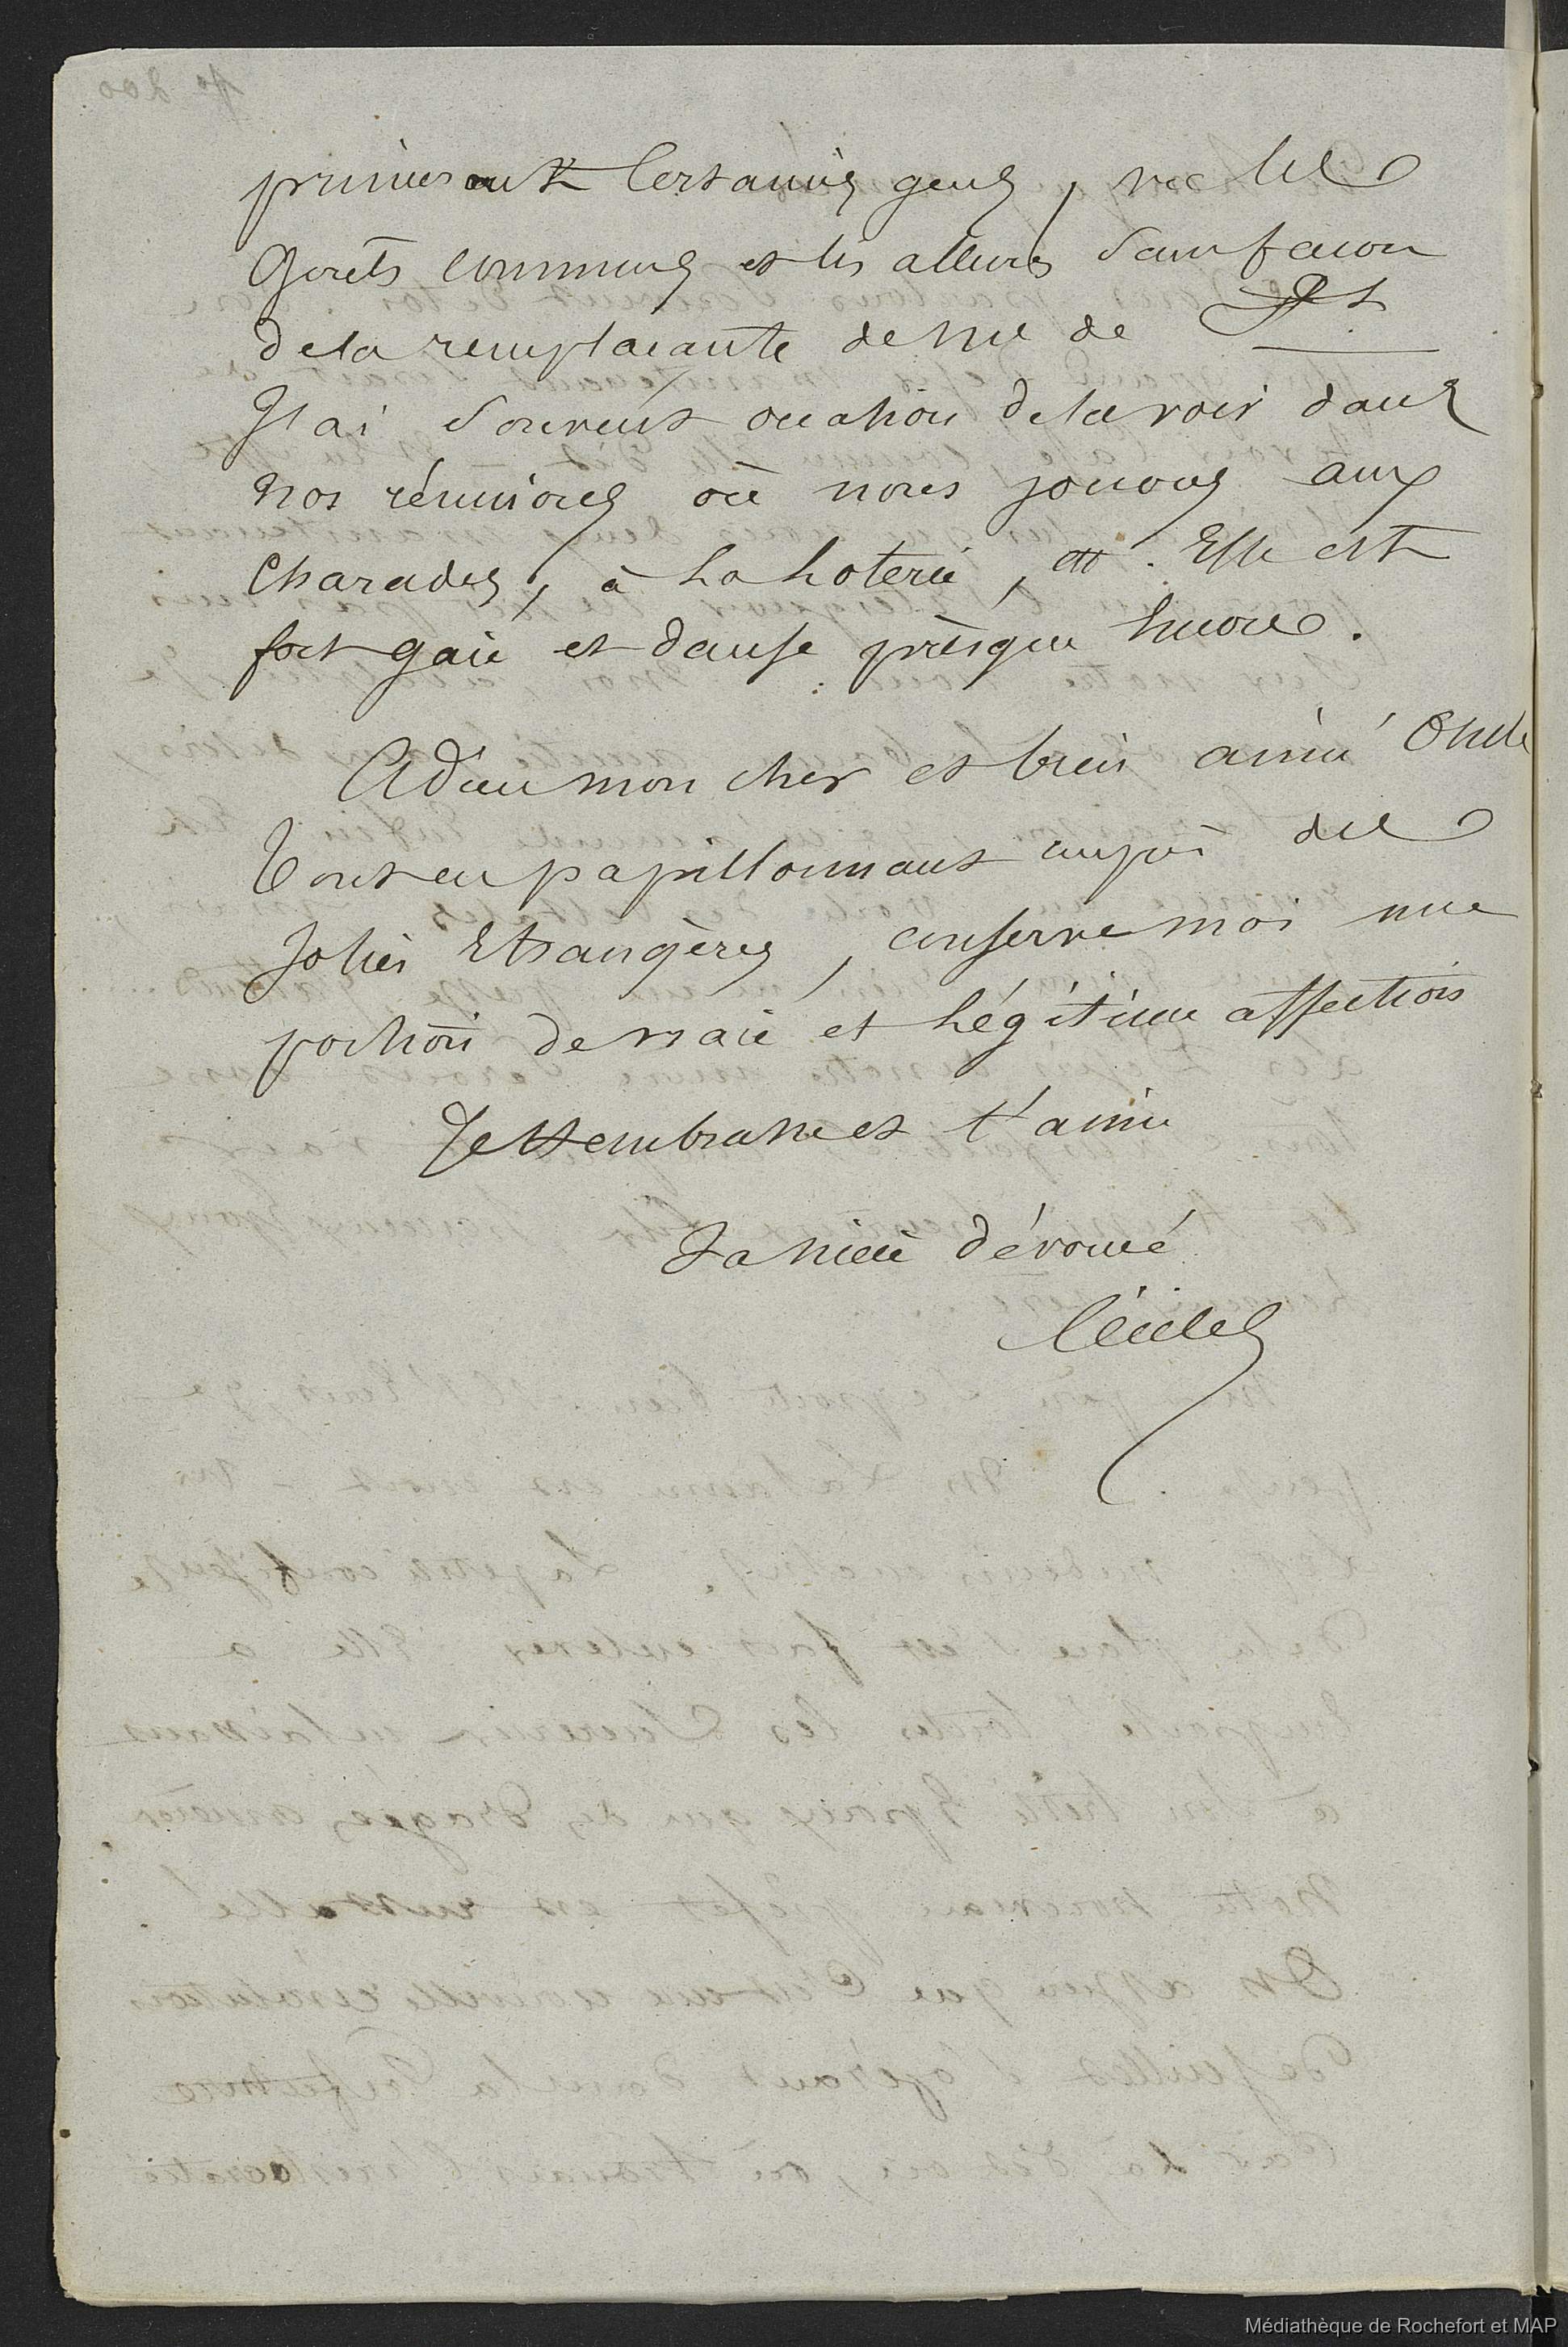 certaines gens, vu les
goûts communs et les allures sans façon
de la remplaçante de Me de
J'ai souvent occasion de la voir dans
nos réunions où nous jouons aux
charades, à la loterie, etc. Elle est
fort gaie et danse presque encore.
Adieu mon cher et bien aimé Oncle
Tout en papillonnant auprès des
jolies Etrangères, conserve moi une
portion de vraie et légitime affection
Je t'embrasse et t'aime
Ta nièce dévouée
Médiathèque de Rochefort et MAP